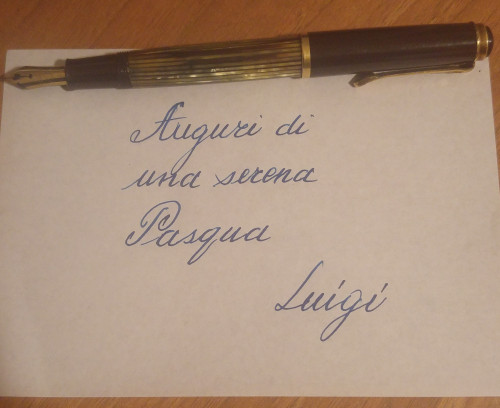 Auguri di
una serena
Pasqua
Luigi